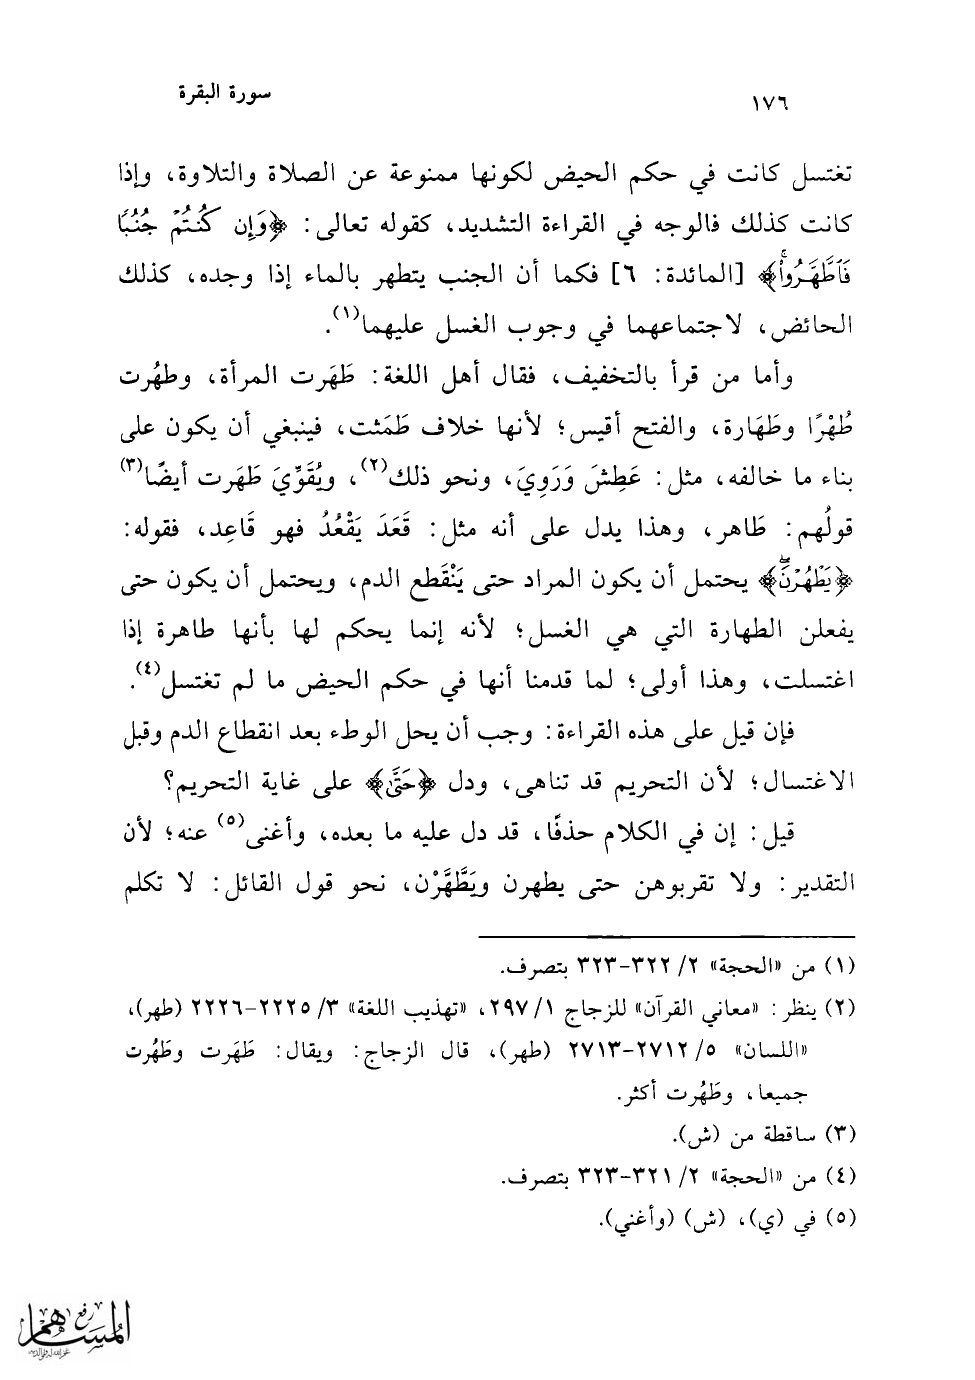 سورة البقرة
١٧٦
تغتسل كانت في حكم الحيض لكونها ممنوعة عن الصلاة والتلاوة، وإذا
كانت كذلك فالوجه في القراءة التشديد، كقوله تعالى: ﴿وَإِن كُنتُمْ جُنُبًا
فَاطَّهَّرُواْ﴾ [المائدة: ٦] فكما أن الجنب يتطهر بالماء إذا وجده، كذلك
الحائض، لاجتماعهما في وجوب الغسل عليهما(١).
وأما من قرأ بالتخفيف، فقال أهل اللغة: طَهَرت المرأة، وطهُرت
طُهْرًا وطَهَارة، والفتح أقيس؛ لأنها خلاف طَمَثت، فينبغي أن يكون على
بناء ما خالفه، مثل: عَطِشَ وَرَوِيَ، ونحو ذلك(٢)، ويُقَوِّيَ طَهَرت أيضًا(٣)
قولُهم: طَاهر، وهذا يدل على أنه مثل: قَعَدَ يَقْعُدُ فهو قَاعِد، فقوله:
﴿يَطْهُرْنَ﴾ يحتمل أن يكون المراد حتى يَنْقَطع الدم، ويحتمل أن يكون حتى
يفعلن الطهارة التي هي الغسل؛ لأنه إنما يحكم لها بأنها طاهرة إذا
اغتسلت، وهذا أولى؛ لما قدمنا أنها في حكم الحيض ما لم تغتسل(٤).
فإن قيل على هذه القراءة: وجب أن يحل الوطء بعد انقطاع الدم وقبل
الاغتسال؛ لأن التحريم قد تناهى، ودل ﴿حَتَّىٰ﴾ على غاية التحريم؟
قيل: إن في الكلام حذفًا، قد دل عليه ما بعده، وأغنى(٥) عنه؛ لأن
التقدير: ولا تقربوهن حتى يطهرن ويَطَّهَّرْن، نحو قول القائل: لا تكلم
(١) من «الحجة» ٢/ ٣٢٢-٣٢٣ بتصرف.
(٢) ينظر: «معاني القرآن» للزجاج ١/ ٢٩٧، «تهذيب اللغة» ٣/ ٢٢٢٥-٢٢٢٦ (طهر)،
«اللسان» ٥/ ٢٧١٢-٢٧١٣ (طهر)، قال الزجاج: ويقال: طَهَرت وطَهُرت
جميعا، وطَهُرت أكثر.
(٣) ساقطة من (ش).
(٤) من «الحجة» ٢/ ٣٢١-٣٢٣ بتصرف.
(٥) في (ي)، (ش) (وأغني).
رفع
المساهم